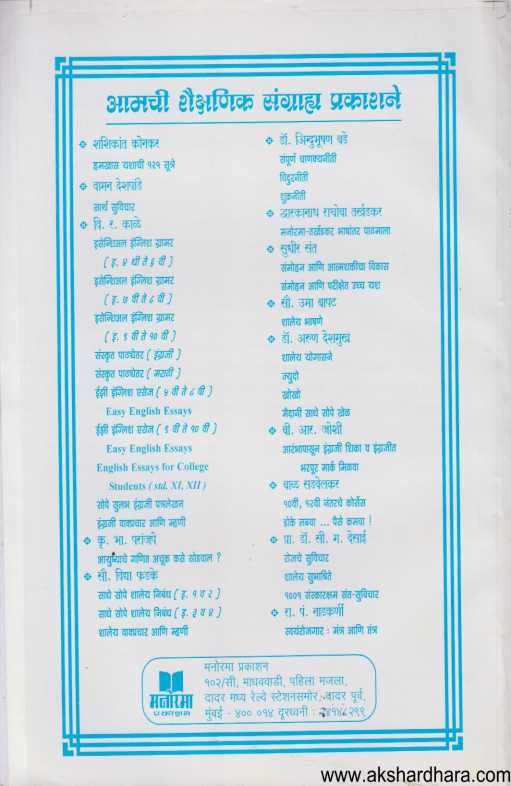 आमची शैक्षणिक संग्राह्य प्रकाशने
❖ शशिकांत कोनकर
हमखास यशाची १२१ सूत्रे
❖ वामन देशपांडे
सार्थ सुविचार
❖ वि. र. काळे
इसेन्शिअल इंग्लिश ग्रामर
( इ. ४ थी ते ६ वी )
इसेन्शिअल इंग्लिश ग्रामर
( इ. ७ वी ते ८ वी )
इसेन्शिअल इंग्लिश ग्रामर
( इ. ९ वी ते १० वी )
संस्कृत पाठ्येतर ( इंग्रजी )
संस्कृत पाठ्येतर ( मराठी )
ईझी इंग्लिश एसेज ( ५ वी ते ८ वी )
Easy English Essays
ईझी इंग्लिश एसेज ( ९ वी ते १० वी )
Easy English Essays
English Essays for College
Students ( std. XI, XII )
सोपे सुलभ इंग्रजी पत्रलेखन
इंग्रजी वाक्प्रचार आणि म्हणी
❖ कृ. भा. परांजपे
आयुष्याचे गणित अचूक कसे सोडवाल ?
❖ सौ. विद्या फडके
साधे सोपे शालेय निबंध ( इ. १ व २ )
साधे सोपे शालेय निबंध ( इ. ३ व ४ )
शालेय वाक्प्रचार आणि म्हणी
❖ डॉ. इन्दुभूषण बडे
संपूर्ण चाणक्यनीती
विदुरनीती
शुक्रनीती
❖ द्वारकानाथ राघोबा तर्खडकर
मनोरमा-तर्खडकर भाषांतर पाठमाला
❖ सुधीर संत
संमोहन आणि आत्मशक्तीचा विकास
संमोहन आणि परीक्षेत उच्च यश
❖ सौ. उमा बापट
शालेय भाषणे
❖ डॉ. अरुण देशमुख
शालेय योगासने
ज्युदो
खोखो
मैदानी साधे सोपे खेळ
❖ बी. आर. जोशी
आरंभापासून इंग्रजी शिका व इंग्रजीत
भरपूर मार्क मिळवा
❖ बाळ सडवेलकर
१०वी, १२वी नंतरचे कोर्सेस
डोके लढवा ... पैसे कमवा !
❖ प्रा. डॉ. सी. म. देसाई
रोजचे सुविचार
शालेय सुभाषिते
१००१ संस्कारक्षम संत-सुविचार
❖ रा. पं. नाडकर्णी
स्वयंरोजगार : मंत्र आणि तंत्र
मनोरमा
प्रकाशन
मनोरमा प्रकाशन
१०२/सी, माधववाडी, पहिला मजला,
दादर मध्य रेल्वे स्टेशनसमोर, दादर पूर्व,
मुंबई - ४०० ०१४ दूरध्वनी :
www.akshardhara.com